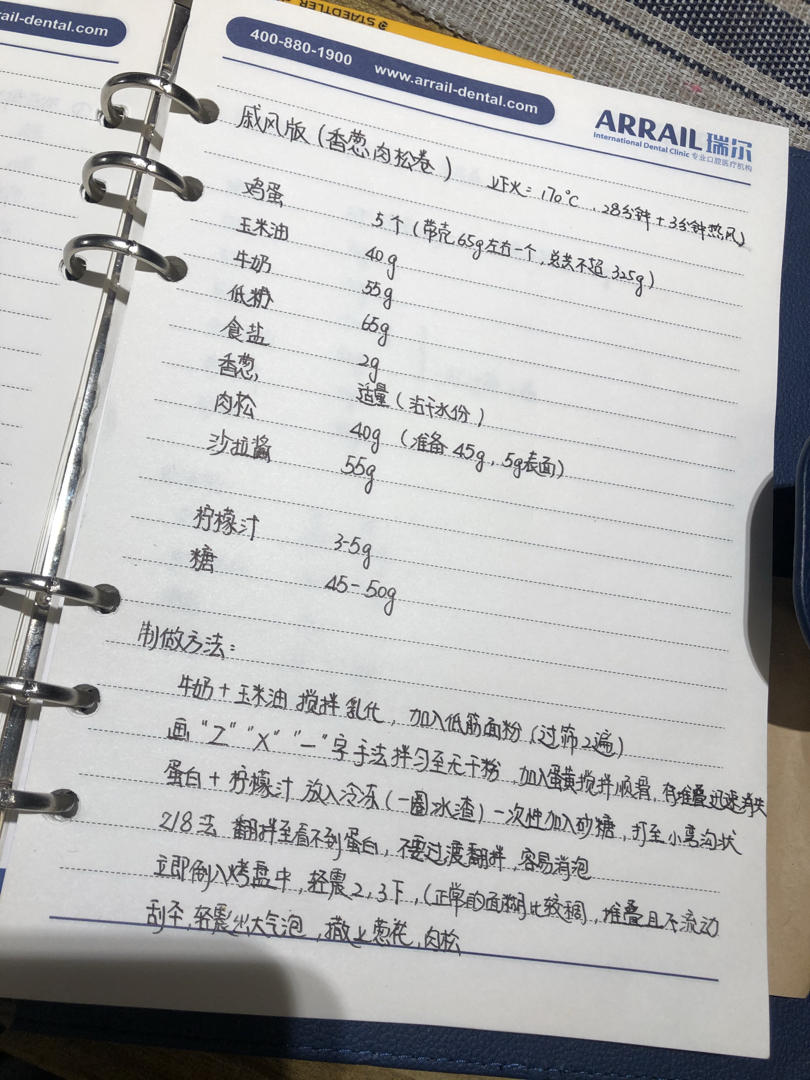 ail-dental.com
STAEDTLER
400-880-1900 www.arrail-dental.com
ARRAIL 瑞尔
International Dental Clinic 专业口腔医疗机构
戚风版（香葱肉松卷） 上下火：170°C，28分钟+3分钟热风
鸡蛋 5个（带壳65g左右一个，总共不超325g）
玉米油 40g
牛奶 55g
低粉 65g
食盐 2g
香葱 适量（沾干水份）
肉松 40g（准备45g，5g表面）
沙拉酱 55g
柠檬汁 3-5g
糖 45-50g
制做方法：
牛奶+玉米油 搅拌乳化，加入低筋面粉（过筛2遍）
画“Z”“X”“一”字手法拌匀至无干粉，加入蛋黄搅拌顺滑，有堆叠迅速消失
蛋白+柠檬汁 放入冷冻（一圈冰渣）一次性加入砂糖，打至小弯沟状
218法 翻拌至看不到蛋白，不要过渡翻拌，容易消泡
立即倒入烤盘中，轻震2，3下，（正常的面糊比较稠，堆叠且不流动
刮平，轻震出大气泡，撒上葱花，肉松